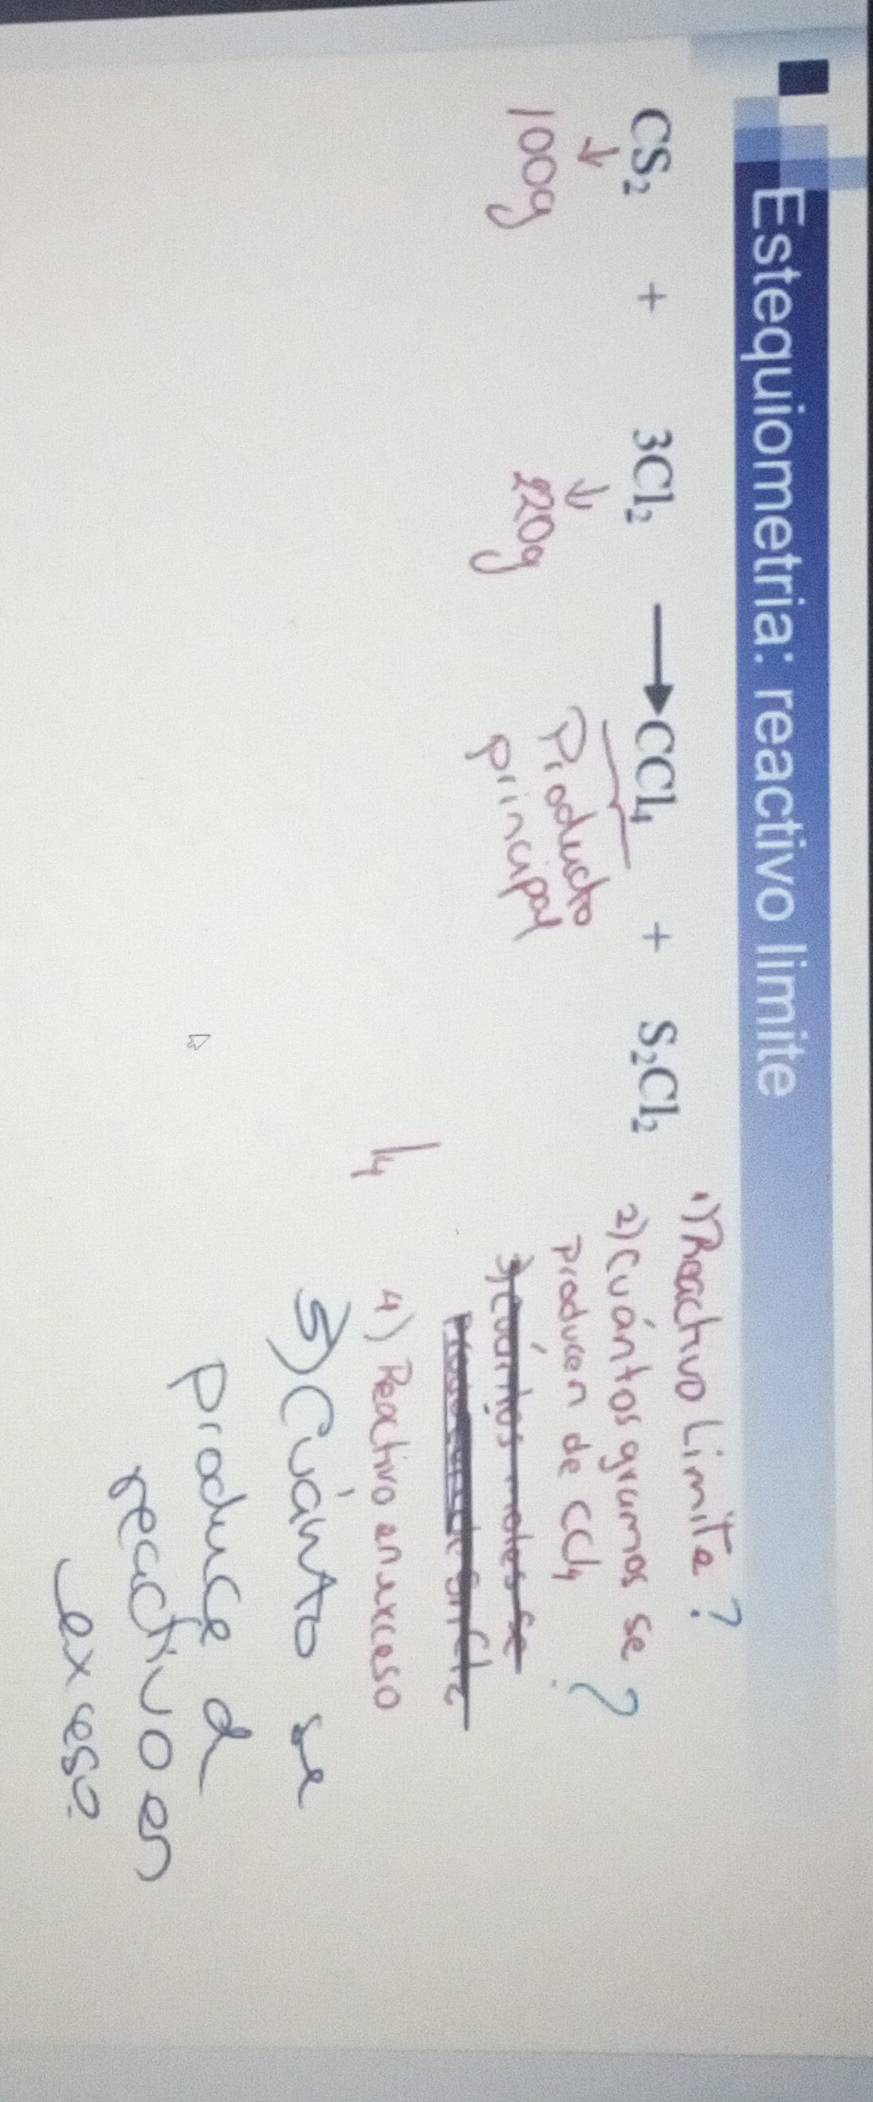 Estequiometria: reactivo limite
CS₂ + 3Cl₂ → CCl₄ + S₂Cl₂
↓ ↓
100g 220g
Producto
principal
1) Reactivo Limite?
2) Cuántos gramos se
producen de CCl₄?
3) Cuántos moles se
4) Reactivo en exceso
5) Cuánto se
produce d
reactivo en
exceso?